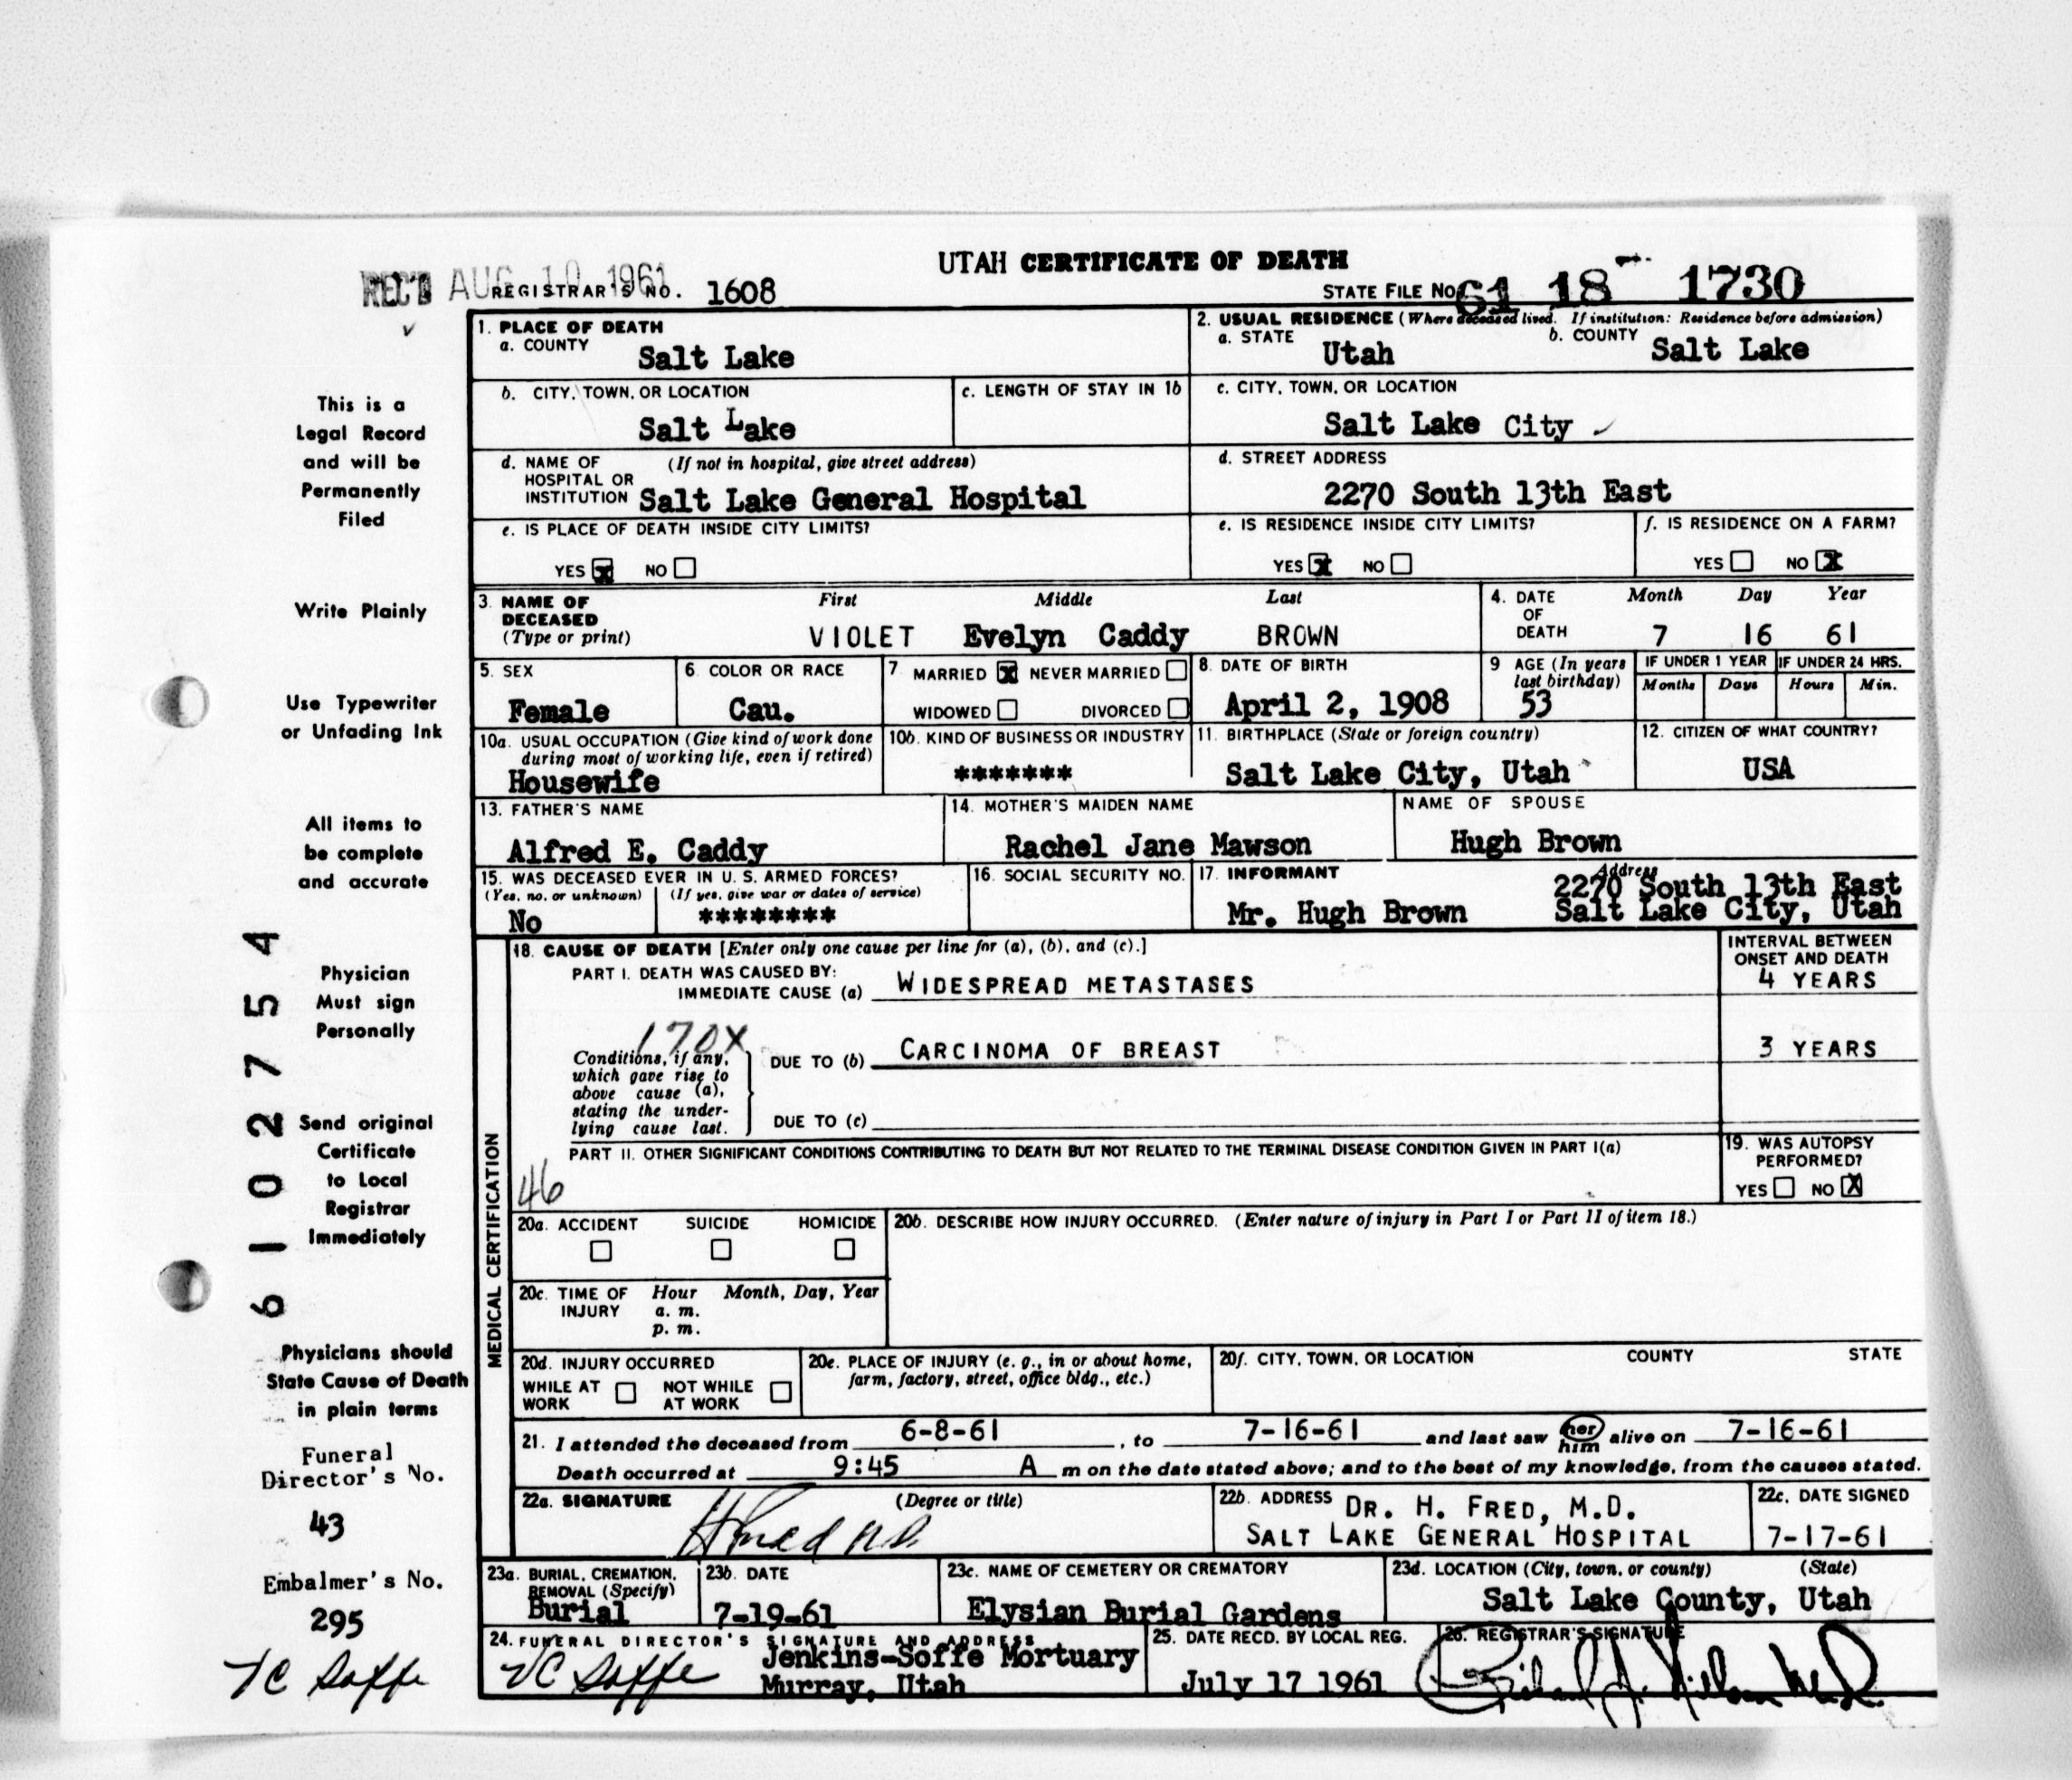 UTAH CERTIFICATE OF DEATH
REC'D AUG 10 1961
REGISTRAR'S NO. 1608
STATE FILE NO. 61 18 1730
1. PLACE OF DEATH
a. COUNTY
Salt Lake
2. USUAL RESIDENCE (Where deceased lived. If institution: Residence before admission)
a. STATE Utah b. COUNTY Salt Lake
b. CITY, TOWN, OR LOCATION
Salt Lake
c. LENGTH OF STAY IN 1b
c. CITY, TOWN, OR LOCATION
Salt Lake City
d. NAME OF HOSPITAL OR INSTITUTION (If not in hospital, give street address)
Salt Lake General Hospital
d. STREET ADDRESS
2270 South 13th East
e. IS PLACE OF DEATH INSIDE CITY LIMITS?
YES X NO
e. IS RESIDENCE INSIDE CITY LIMITS?
YES X NO
f. IS RESIDENCE ON A FARM?
YES NO X
3. NAME OF DECEASED (Type or print)
First Middle Last
VIOLET Evelyn Caddy BROWN
4. DATE OF DEATH
Month Day Year
7 16 61
5. SEX
Female
6. COLOR OR RACE
Cau.
7 MARRIED X NEVER MARRIED
WIDOWED DIVORCED
8. DATE OF BIRTH
April 2, 1908
9 AGE (In years last birthday)
53
IF UNDER 1 YEAR
Months Days
IF UNDER 24 HRS.
Hours Min.
10a. USUAL OCCUPATION (Give kind of work done during most of working life, even if retired)
Housewife
10b. KIND OF BUSINESS OR INDUSTRY
*******
11. BIRTHPLACE (State or foreign country)
Salt Lake City, Utah
12. CITIZEN OF WHAT COUNTRY?
USA
13. FATHER'S NAME
Alfred E. Caddy
14. MOTHER'S MAIDEN NAME
Rachel Jane Mawson
NAME OF SPOUSE
Hugh Brown
15. WAS DECEASED EVER IN U. S. ARMED FORCES?
(Yes, no, or unknown) (If yes, give war or dates of service)
No ********
16. SOCIAL SECURITY NO.
17. INFORMANT Address
Mr. Hugh Brown
2270 South 13th East
Salt Lake City, Utah
MEDICAL CERTIFICATION
18. CAUSE OF DEATH [Enter only one cause per line for (a), (b), and (c).]
INTERVAL BETWEEN ONSET AND DEATH
PART I. DEATH WAS CAUSED BY:
IMMEDIATE CAUSE (a) WIDESPREAD METASTASES
4 YEARS
170X
Conditions, if any, which gave rise to above cause (a), stating the underlying cause last.
DUE TO (b) CARCINOMA OF BREAST
3 YEARS
DUE TO (c)
PART II. OTHER SIGNIFICANT CONDITIONS CONTRIBUTING TO DEATH BUT NOT RELATED TO THE TERMINAL DISEASE CONDITION GIVEN IN PART I(a)
46
19. WAS AUTOPSY PERFORMED?
YES NO X
20a. ACCIDENT SUICIDE HOMICIDE
20b. DESCRIBE HOW INJURY OCCURRED. (Enter nature of injury in Part I or Part II of item 18.)
20c. TIME OF INJURY Hour Month, Day, Year
a. m.
p. m.
20d. INJURY OCCURRED
WHILE AT WORK NOT WHILE AT WORK
20e. PLACE OF INJURY (e. g., in or about home, farm, factory, street, office bldg., etc.)
20f. CITY, TOWN, OR LOCATION COUNTY STATE
21. I attended the deceased from 6-8-61, to 7-16-61 and last saw her him alive on 7-16-61
Death occurred at 9:45 A m on the date stated above; and to the best of my knowledge, from the causes stated.
22a. SIGNATURE (Degree or title)
H Fred M.D.
22b. ADDRESS DR. H. FRED, M.D.
SALT LAKE GENERAL HOSPITAL
22c. DATE SIGNED
7-17-61
23a. BURIAL, CREMATION, REMOVAL (Specify)
Burial
23b. DATE
7-19-61
23c. NAME OF CEMETERY OR CREMATORY
Elysian Burial Gardens
23d. LOCATION (City, town, or county) (State)
Salt Lake County, Utah
24. FUNERAL DIRECTOR'S SIGNATURE AND ADDRESS
Soffe
Jenkins-Soffe Mortuary
Murray, Utah
25. DATE RECD. BY LOCAL REG.
July 17 1961
26. REGISTRAR'S SIGNATURE
This is a
Legal Record
and will be
Permanently
Filed
Write Plainly
Use Typewriter
or Unfading Ink
All items to
be complete
and accurate
Physician
Must sign
Personally
Send original
Certificate
to Local
Registrar
Immediately
Physicians should
State Cause of Death
in plain terms
Funeral
Director's No.
43
Embalmer's No.
295
Soffe
61 02754